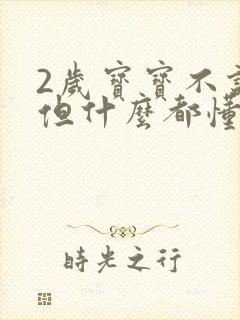 2歲寶寶不
但什麼都懂
時光之行